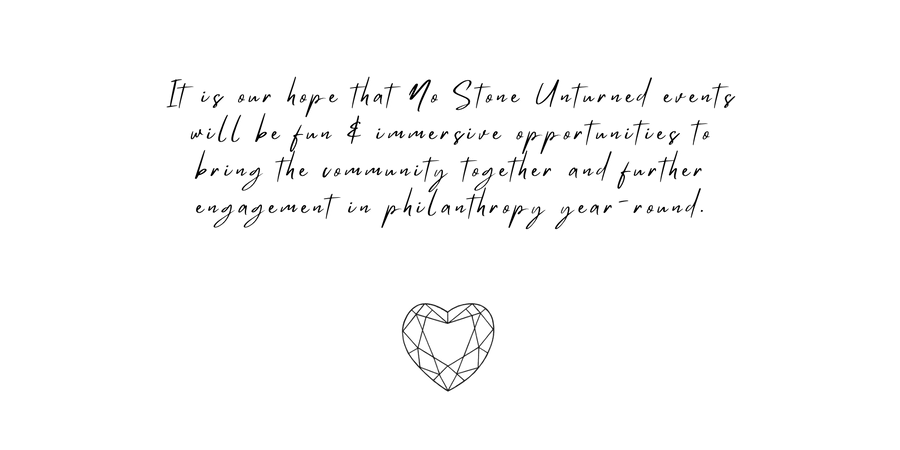 It is our hope that No Stone Unturned events
will be fun & immersive opportunities to
bring the community together and further
engagement in philanthropy year-round.